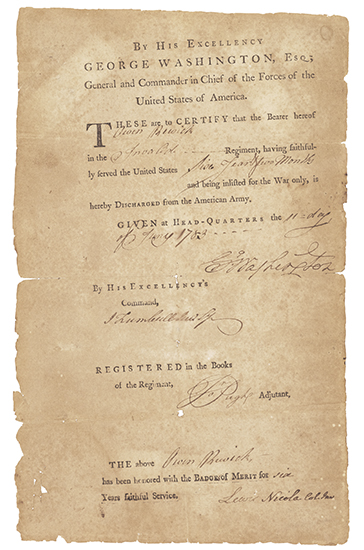 By His EXCELLENCY
GEORGE WASHINGTON, Esq;
General and Commander in Chief of the Forces of the
United States of America.
THESE are to CERTIFY that the Bearer hereof
Owen
in the Invalid Regiment, having faithful-
ly served the United States Six Years two Months
and being inlisted for the War only, is
hereby DISCHARGED from the American Army.
GIVEN at HEAD-QUARTERS the 11th day
of 1783
G Washington
By HIS EXCELLENCY'S
Command,
J Trumbull Jun Sy
REGISTERED in the Books
of the Regiment,
Adjutant,
THE above Owen
has been honored with the BADGE of MERIT for six
Years faithful Service. Lewis Nicola Col. Inv